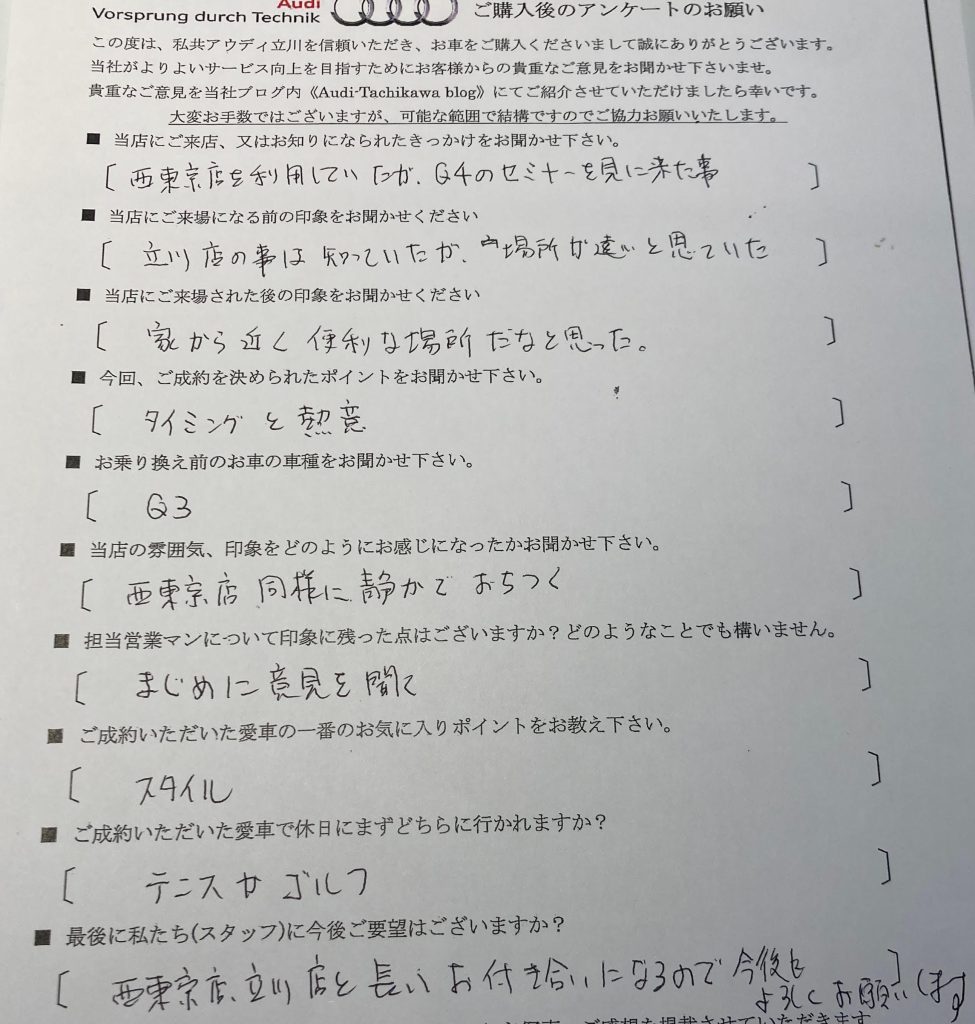 Audi
Vorsprung durch Technik
ご購入後のアンケートのお願い
この度は、私共アウディ立川を信頼いただき、お車をご購入くださいまして誠にありがとうございます。
当社がよりよいサービス向上を目指すためにお客様からの貴重なご意見をお聞かせ下さいませ。
貴重なご意見を当社ブログ内《Audi-Tachikawa blog》にてご紹介させていただけましたら幸いです。
大変お手数ではございますが、可能な範囲で結構ですのでご協力お願いいたします。
■ 当店にご来店、又はお知りになられたきっかけをお聞かせ下さい。
[ 西東京店を利用していたが、Q4のセミナーを見に来た事 ]
■ 当店にご来場になる前の印象をお聞かせください
[ 立川店の事は知っていたが、場所が遠いと思ていた ]
■ 当店にご来場された後の印象をお聞かせください
[ 家から近く便利な場所だなと思った。 ]
■ 今回、ご成約を決められたポイントをお聞かせ下さい。
[ タイミングと熱意 ]
■ お乗り換え前のお車の車種をお聞かせ下さい。
[ Q3 ]
■ 当店の雰囲気、印象をどのようにお感じになったかお聞かせ下さい。
[ 西東京店同様に静かでおちつく ]
■ 担当営業マンについて印象に残った点はございますか？どのようなことでも構いません。
[ まじめに意見を聞く ]
■ ご成約いただいた愛車の一番のお気に入りポイントをお教え下さい。
[ スタイル ]
■ ご成約いただいた愛車で休日にまずどちらに行かれますか？
[ テニスかゴルフ ]
■ 最後に私たち(スタッフ)に今後ご要望はございますか？
[ 西東京店、立川店と長いお付き合いになるので今後も ]
よろしくお願いします
ご感想を掲載させていただきます